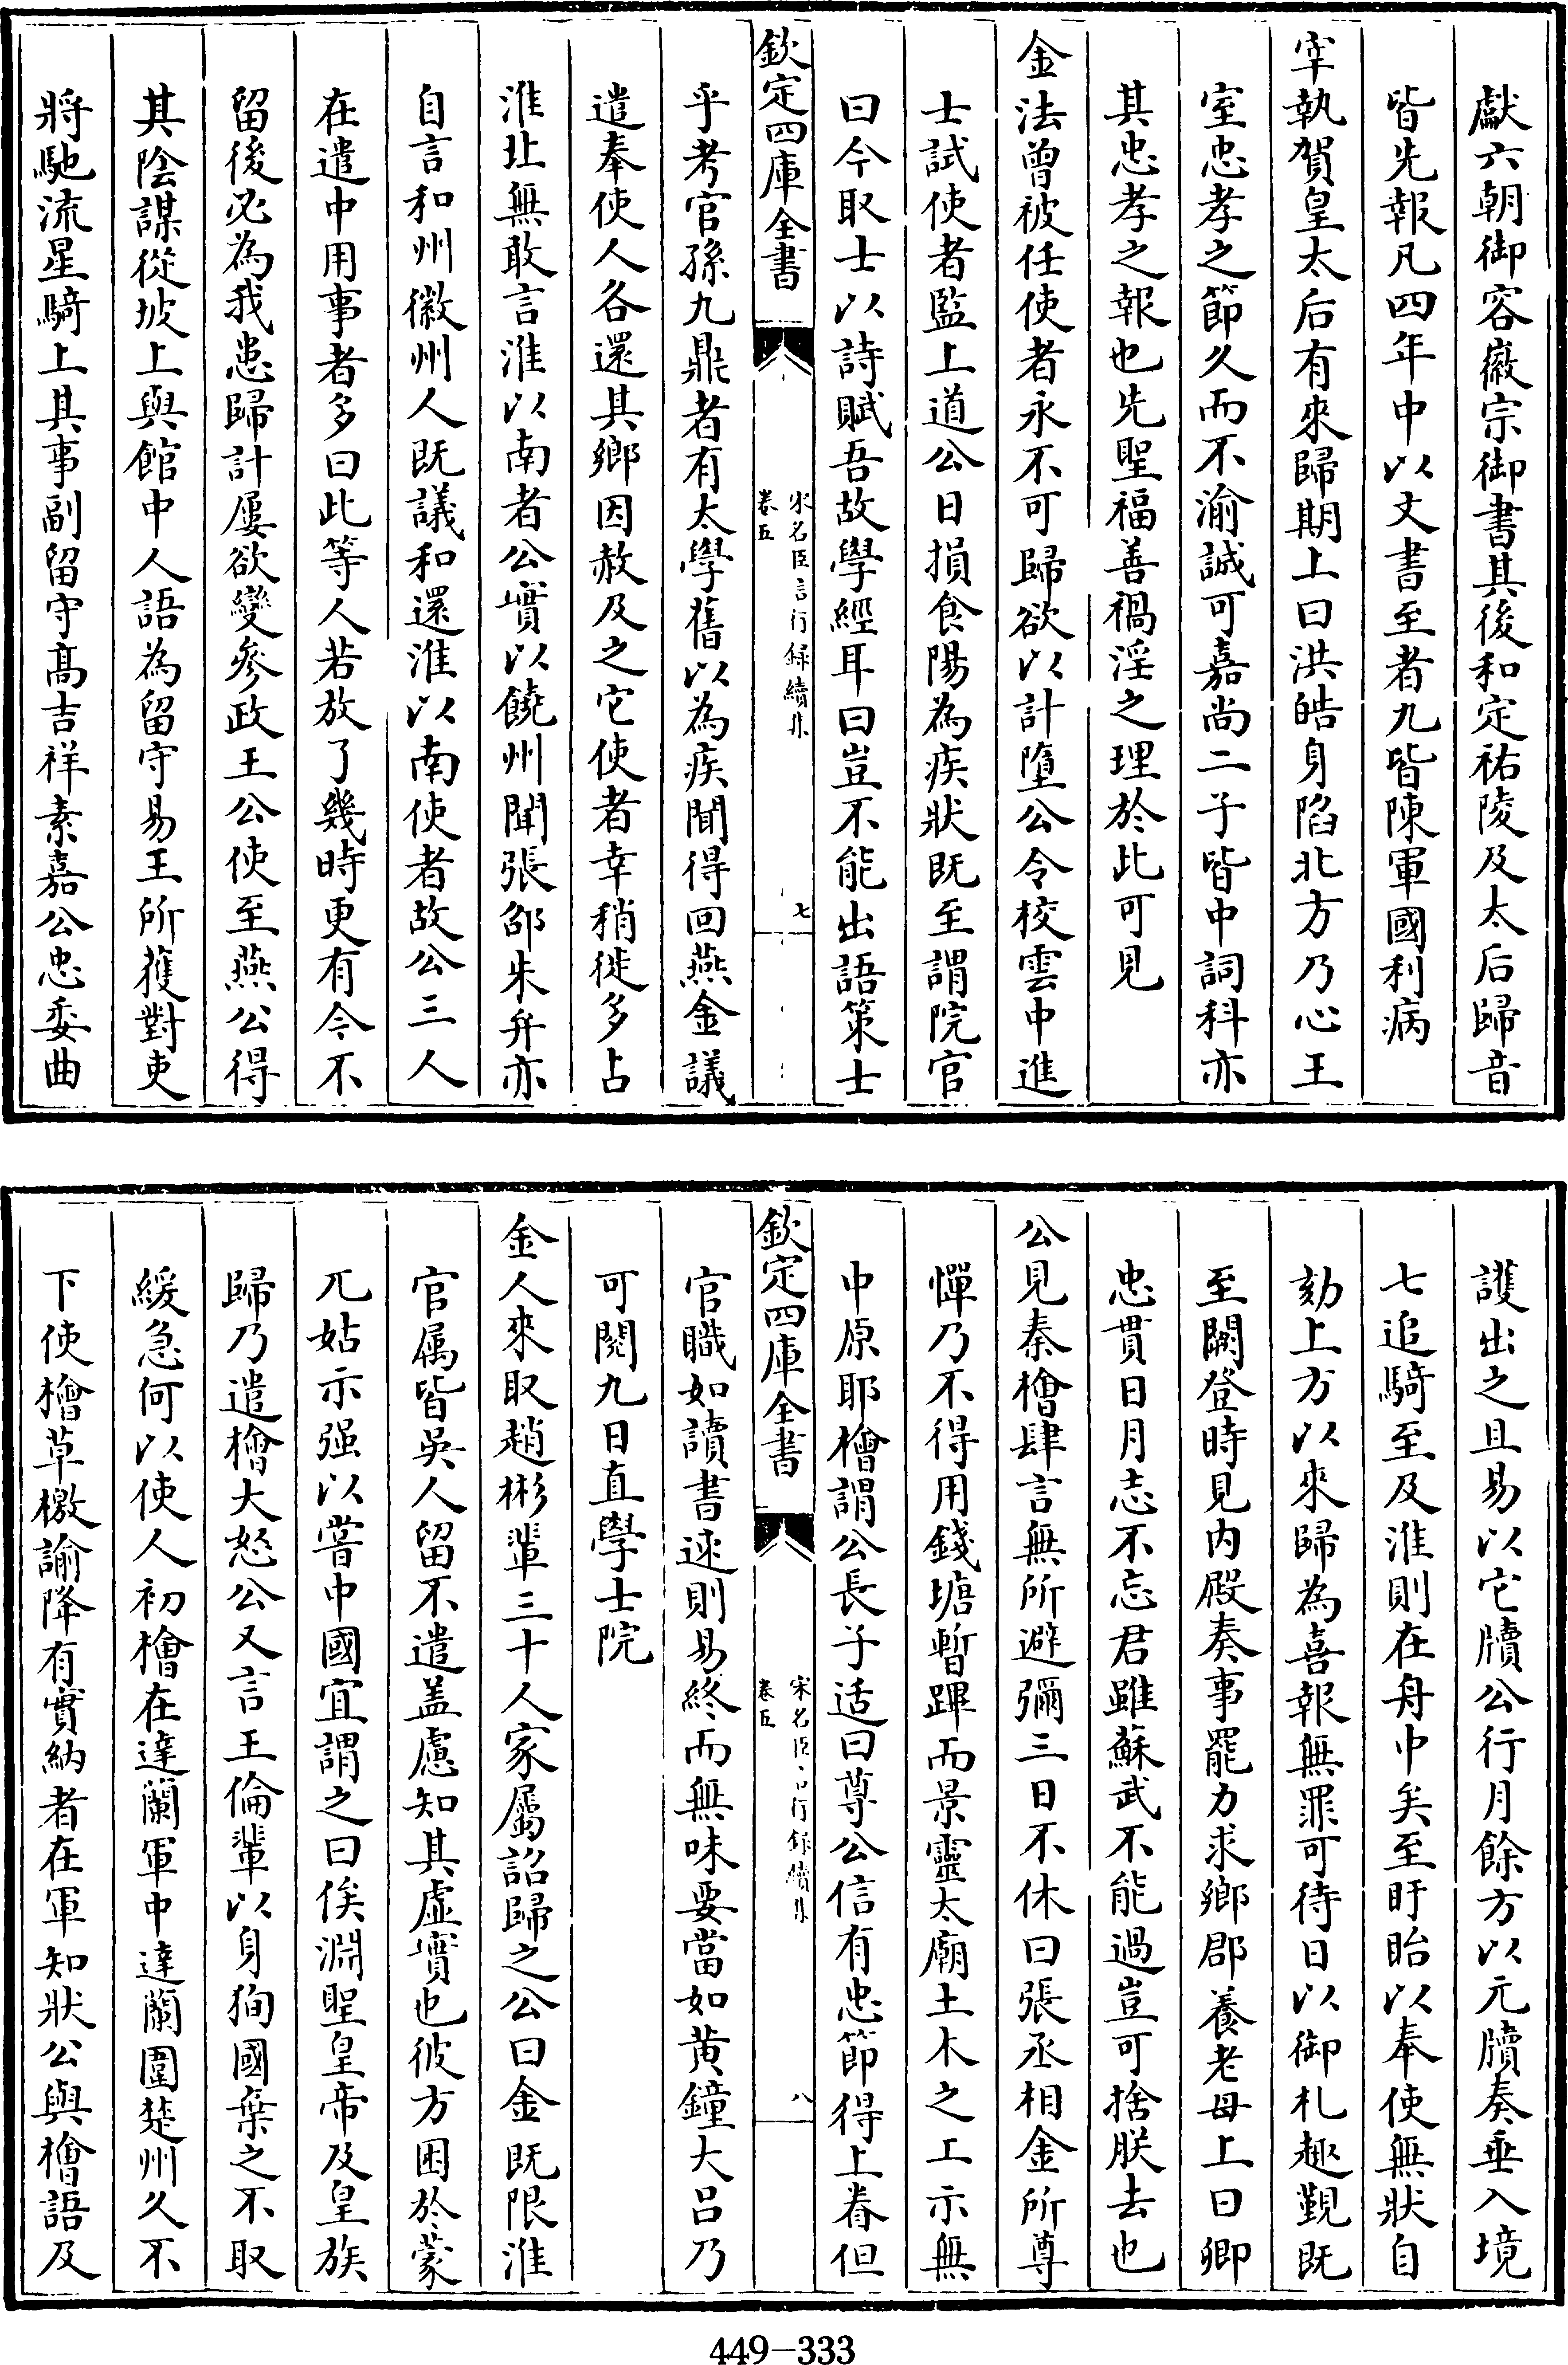 獻六朝御容徽宗御書其後和定祐陵及太后歸音
皆先報凡四年中以文書至者九皆陳軍國利病
宰執賀皇太后有來歸期上曰洪皓身陷北方乃心王
室忠孝之節久而不渝誠可嘉尚二子皆中詞科亦
其忠孝之報也先聖福善禍淫之理於此可見
金法曾被任使者永不可歸欲以計墮公令校雲中進
士試使者監上道公日損食陽為疾狀既至謂院官
曰今取士以詩賦吾故學經耳曰豈不能出語策士
欽定四庫全書
宋名臣言行録續集
卷五
七
乎考官孫九鼎者有太學舊以為疾聞得回燕金議
遣奉使人各還其鄉因赦及之它使者幸稍徙多占
淮北無敢言淮以南者公實以饒州聞張邵朱弁亦
自言和州徽州人既議和還淮以南使者故公三人
在遣中用事者多曰此等人若放了幾時更有令不
留後必為我患歸計屢欲變參政王公使至燕公得
其陰謀從坡上與館中人語為留守易王所獲對吏
將馳流星騎上其事副留守髙吉祥素嘉公忠委曲
護出之且易以它牘公行月餘方以元牘奏垂入境
七追騎至及淮則在舟中矣至盱眙以奉使無狀自
劾上方以來歸為喜報無罪可待日以御札趣覲既
至闕登時見内殿奏事罷力求鄉郡養老母上曰卿
忠貫日月志不忘君雖蘇武不能過豈可捨朕去也
公見秦檜肆言無所避彌三日不休曰張丞相金所尊
憚乃不得用錢塘暫蹕而景靈太廟土木之工示無
中原耶檜謂公長子适曰尊公信有忠節得上眷但
欽定四庫全書
宋名臣言行録續集
卷五
八
官職如讀書速則易終而無味要當如黄鐘大吕乃
可閱九日直學士院
金人來取趙彬輩三十人家屬詔歸之公曰金既限淮
官属皆吳人留不遣盖慮知其虚實也彼方困於蒙
兀姑示强以嘗中國宜謂之曰俟淵聖皇帝及皇族
歸乃遣檜大怒公又言王倫輩以身狥國棄之不取
緩急何以使人初檜在達蘭軍中達蘭圍楚州久不
下使檜草檄諭降有實納者在軍知狀公與檜語及
449-333